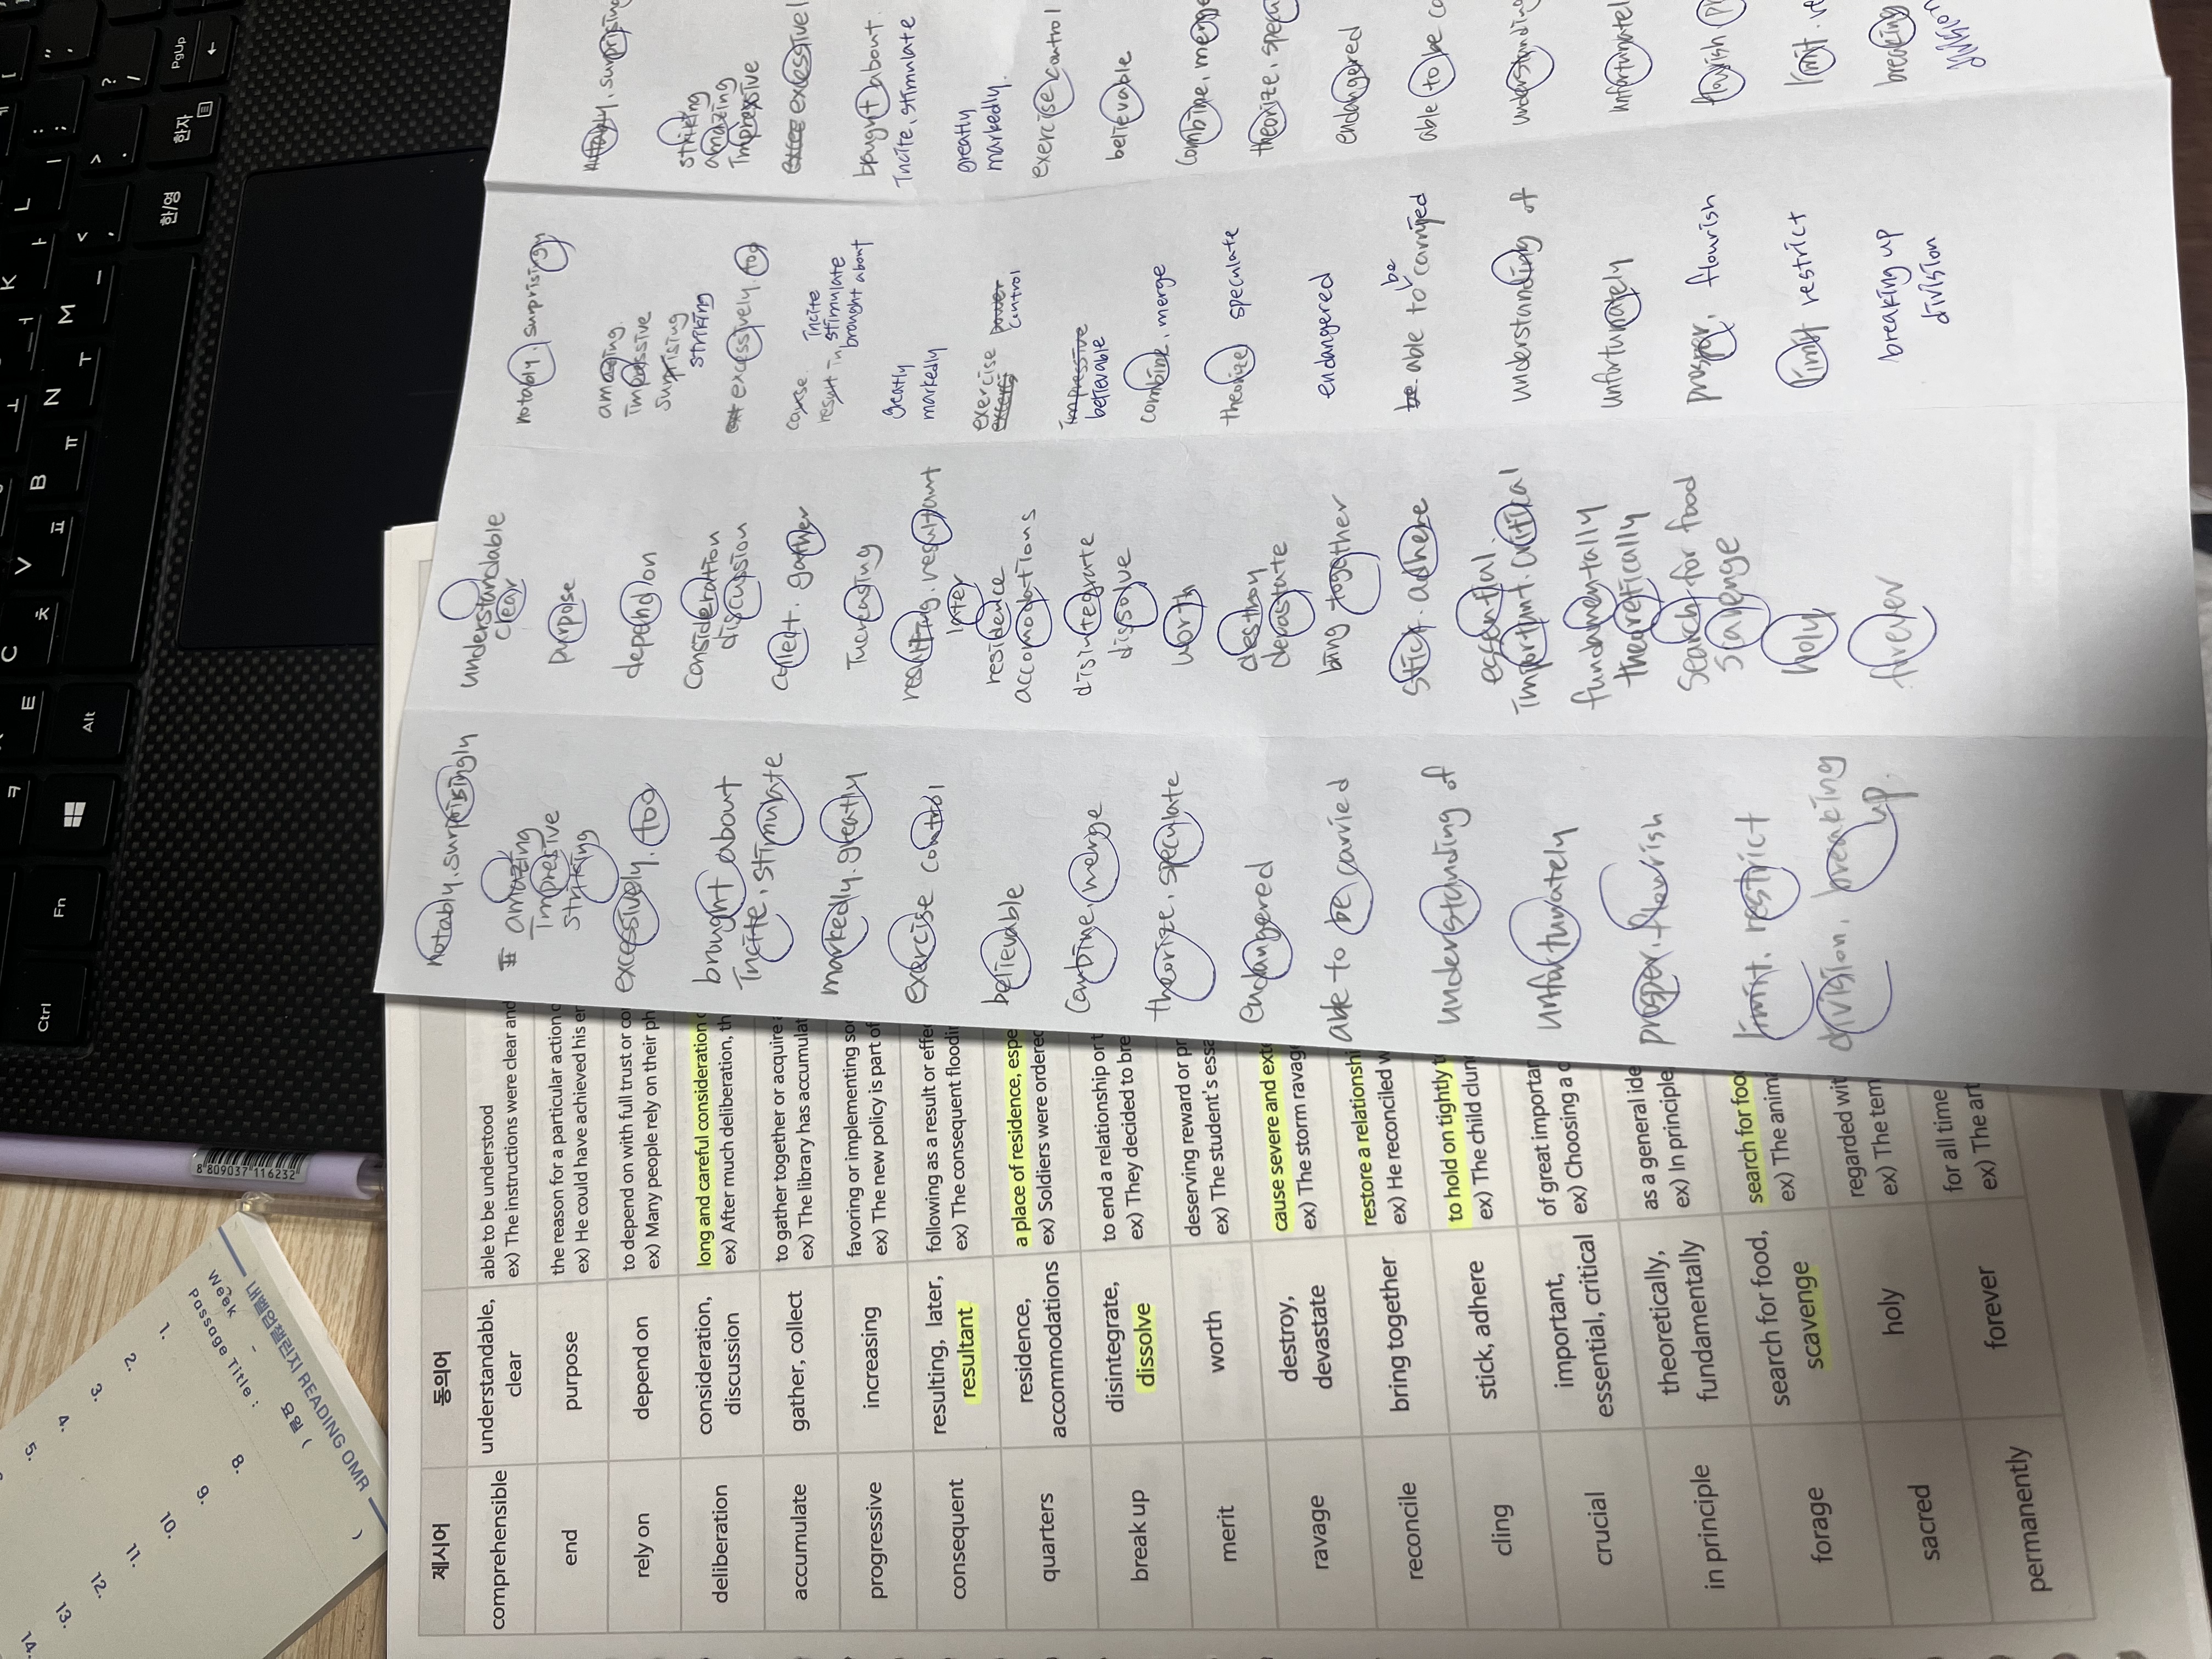 제시어
동의어
comprehensible
understandable,
clear
able to be understood
ex) The instructions were clear and
end
purpose
the reason for a particular action
ex) He could have achieved his
rely on
depend on
to depend on with full trust or
ex) Many people rely on their
deliberation
consideration,
discussion
long and careful consideration
ex) After much deliberation,
accumulate
gather, collect
to gather together or acquire
ex) The library has
progressive
increasing
favoring or implementing
ex) The new policy is part of
consequent
resulting, later,
resultant
following as a result or
ex) The consequent
quarters
residence,
accommodations
a place of residence,
ex) Soldiers were ordered
break up
disintegrate,
dissolve
to end a relationship or
ex) They decided to
merit
worth
deserving reward or
ex) The student's
ravage
destroy,
devastate
cause severe and
ex) The storm
reconcile
bring together
restore a
ex) He reconciled
cling
stick, adhere
to hold on tightly
ex) The child
crucial
important,
essential, critical
of great
ex) Choosing a
in principle
theoretically,
fundamentally
as a general
ex) In principle
forage
search for food,
scavenge
search for
ex) The
sacred
holy
regarded
ex) The
permanently
forever
for all time
ex) The art
notably. surprisingly
amazing
Impressive
striking
excessively. too
brought about
Incite, stimulate
markedly. greatly
exercise control
believable
Combine, merge
theorize, speculate
Endangered
able to be carried
understanding of
unfortunately
prosper. flourish
limit. restrict
division. breaking
up.
understandable
clear
purpose
depend on
Consideration
discussion
collect. gather
Increasing
resulting. resultant
later
residence
accomodations
disintegrate
dissolve
worth
destroy
devastate
bring together
stick. adhere
essential.
Important. critical
fundamentally
theoretically
search for food
holy
forever
notably. surprising
amazing.
impressive
surprising
striking
excessively. too
cause.
result in
incite
stimulate
brought about
markedly
exercise
control
believable
combine. merge
theorize speculate
endangered
able to be carried
understanding of
unfortunately
prosper. flourish
limit restrict
breaking up
division
striking
amazing
Impressive
bought about.
Incite, stimulate
greatly
markedly.
exercise control
believable
endangered
able to be
breaking
Ctrl
Fn
Alt
PgUp
한자
한/영
C
ㅊ
V
ㅍ
B
ㅠ
N
ㅜ
M
ㅡ
E
K
ㅏ
L
ㅣ
8 809037 116232
내벨업챌린지 READING OMR
week
요일 ( )
Passage Title :
1.
2.
3.
4.
5.
8.
9.
10.
11.
12.
13.
14.